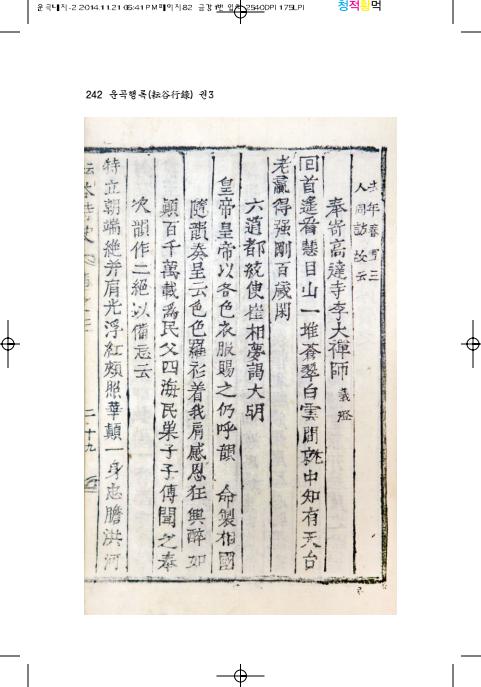 운곡대지-2 2014.11.21 05:41 PM 페이지 82
2540DPI 175LPI
청적황먹
242 운곡행록(耘谷行錄) 권3
去年春書三
人同訪故云
奉寄高達寺李大禪師 義澄
回首遙看慧目山一堆蒼翠白雲間就中知有天台
老羸得强剛百歲閑
六道都統使崔相夢謁大明
皇帝皇帝以各色衣服賜之仍呼韻 命製相國
隨韻奏呈云色色羅衫着我肩感恩狂興醉如
顚百千萬載爲民父四海民巢子子傳聞之奉
次韻作二絶以備忘云
特立朝端絶幷肩光浮紅頰照華顚一身忠膽洪河
二十九